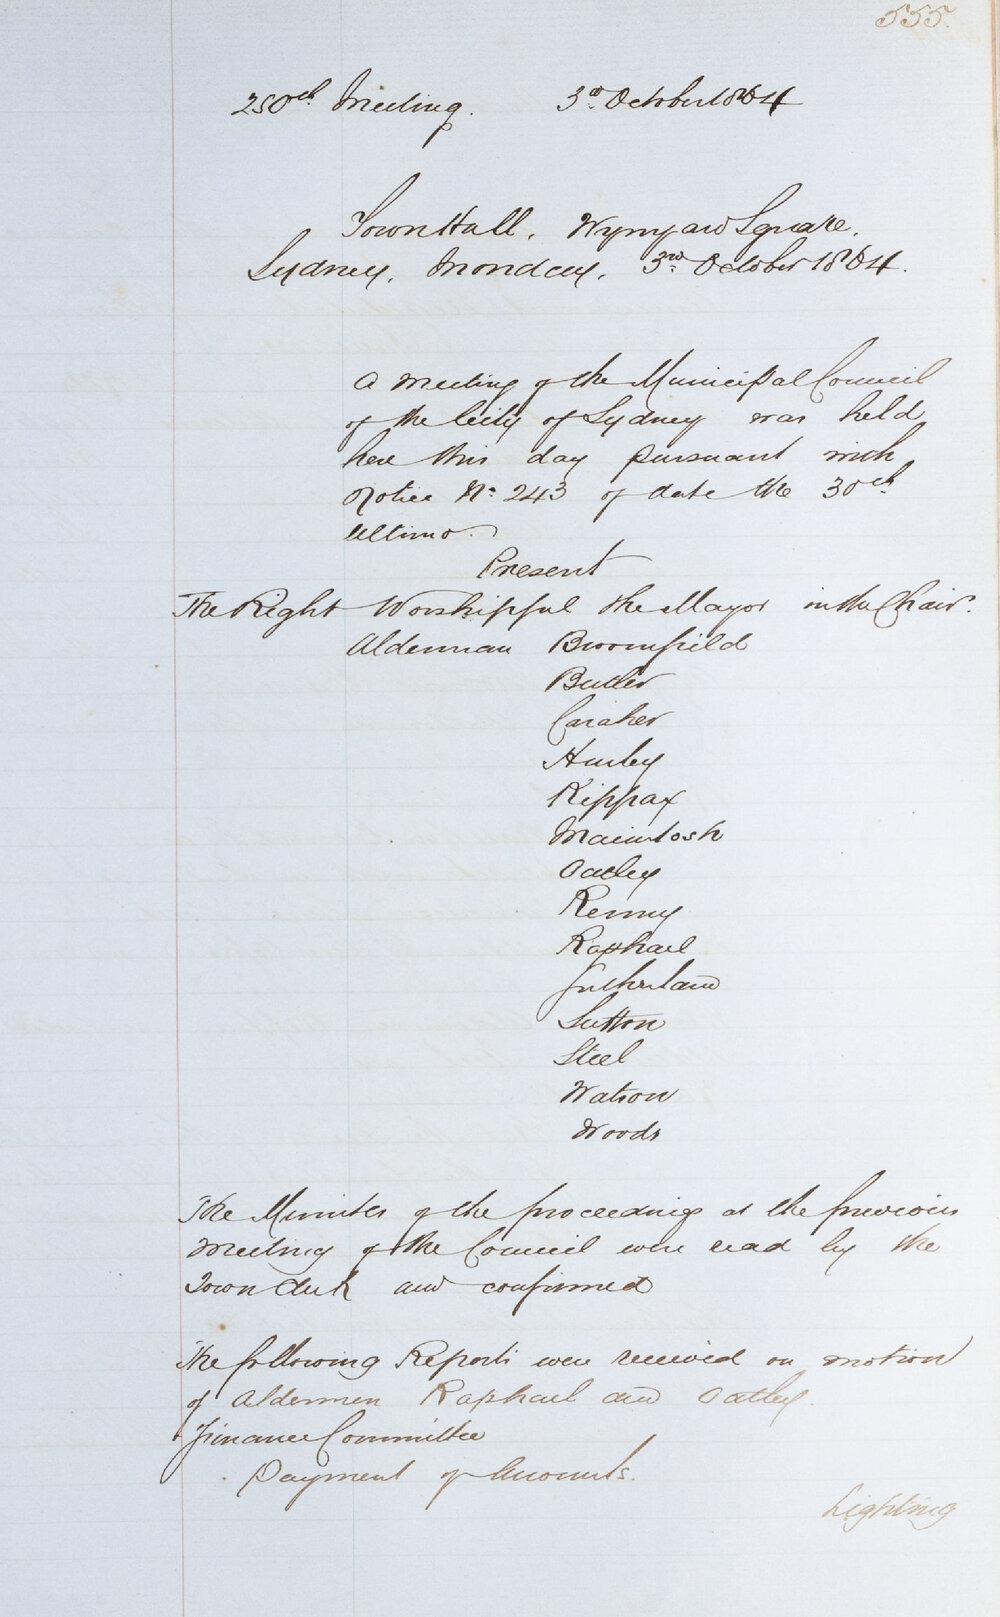 555.
250th Meeting. 3rd October 1864
Town Hall, Wynyard Square.
Sydney, Monday, 3rd October 1864.
A Meeting of the Municipal Council
of the City of Sydney was held
here this day pursuant with
Notice No. 243 of date the 30th
Ultimo.
Present
The Right Worshipful the Mayor in the Chair.
Alderman Broomfield
Butler
Caraher
Hurley
Kippax
Macintosh
Oatley
Renny
Raphael
Sutherland
Sutton
Steel
Watson
Woods
The Minutes of the proceedings at the previous
Meeting of the Council were read by the
Town Clerk and confirmed
The following Reports were received on motion
of Aldermen Raphael and Oatley.
Finance Committee
Payment of Accounts.
Lighting